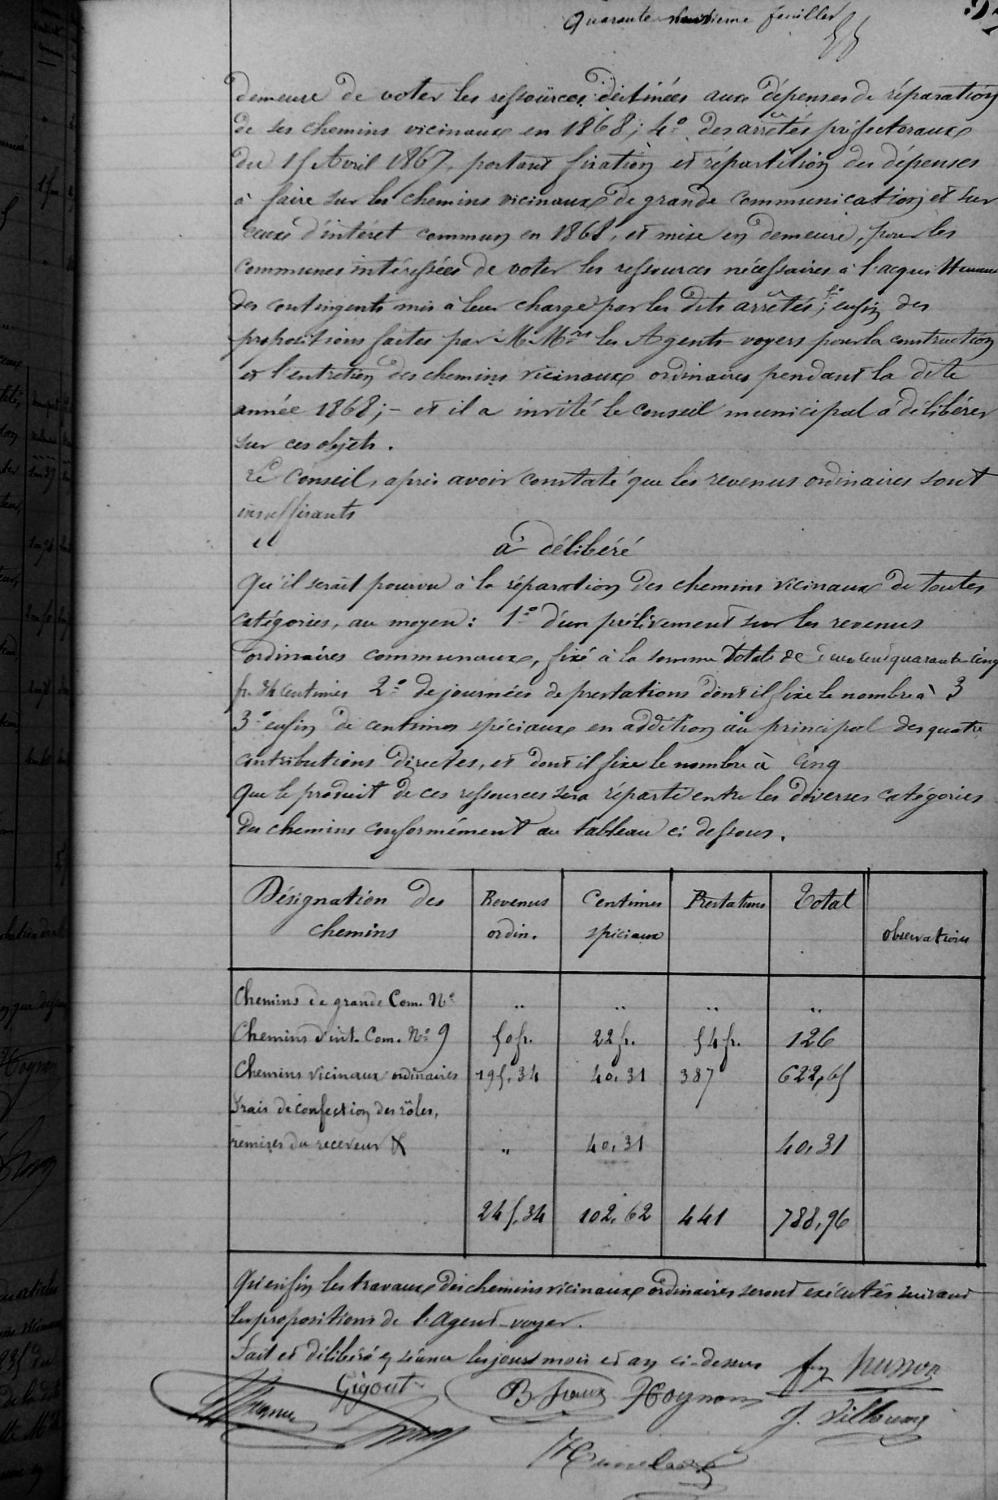 Quarante feuillet
demeure de voter les ressources destinées aux dépenses de réparation
de ses chemins vicinaux en 1868; 4.° des arrêtés préfectoraux
du 15 Avril 1867, portant fixation et répartition des dépenses
à faire sur les chemins vicinaux de grande communication et sur
ceux d'intérêt commun en 1868, et mise en demeure, pour les
communes intéressées de voter les ressources nécessaires à l'acquittement
des contingents mis à leur charge par les dits arrêtés; 5° enfin des
propositions faites par M.Mrs les Agents-voyers pour la construction
et l'entretien des chemins vicinaux ordinaires pendant la dite
année 1868; - et il a invité le conseil municipal à délibérer
sur ces objets.
Le Conseil, après avoir constaté que les revenus ordinaires sont
insuffisants
à délibéré
Qu'il serait pourvu à la réparation des chemins vicinaux de toutes
catégories, au moyen: 1.° d'un prélèvement sur les revenus
ordinaires communaux, fixé à la somme totale de deux cent quarante cinq
fr. 34 centimes 2.° de journées de prestations dont il fixe le nombre à 3
3.° enfin de centimes spéciaux en addition au principal des quatre
contributions directes, et dont il fixe le nombre à cinq
Que le produit de ces ressources sera réparti entre les diverses catégories
des chemins conformément au tableau ci dessous.
Désignation des chemins Revenus ordin. Centimes spéciaux Prestations Total observations
Chemins de grande Com. N° " " " "
Chemins d'int. Com. N° 9 50 fr. 22 fr. 54 fr. 126
Chemins vicinaux ordinaires 195,34 40,31 387 622,65
Frais de confection des rôles,
remises du receveur & " 40,31 40,31
245,34 102,62 441 788,96
Qu'enfin les travaux des chemins vicinaux ordinaires seront exécutés suivant
les propositions de l'Agent-voyer.
Fait et délibéré en séance les jour mois et an ci-dessus
Gigout Hoynon Husson